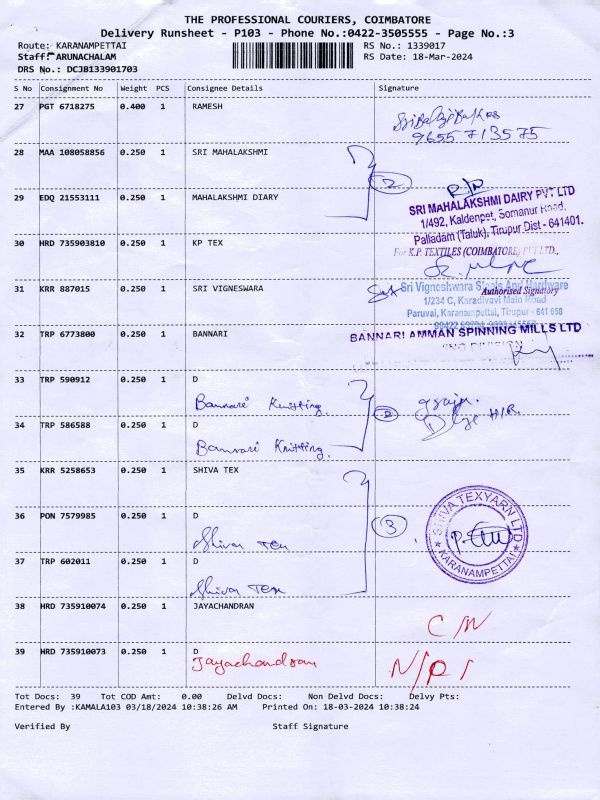 THE PROFESSIONAL COURIERS, COIMBATORE
Delivery Runsheet - P103 - Phone No.:0422-3505555 - Page No.:3
Route: KARANAMPETTAI RS No.: 1339017
Staff: ARUNACHALAM RS Date: 18-Mar-2024
DRS No.: DCJB133901703
S No Consignment No Weight PCS Consignee Details Signature
27 PGT 6718275 0.400 1 RAMESH
9655713575
28 MAA 108058856 0.250 1 SRI MAHALAKSHMI
2
29 EDQ 21553111 0.250 1 MAHALAKSHMI DIARY
SRI MAHALAKSHMI DAIRY PVT LTD
1/492, Kaldenpet, Somanur Road,
Palladam (Taluk), Tirupur Dist - 641401.
30 HRD 735903810 0.250 1 KP TEX
For K.P. TEXTILES (COIMBATORE) PVT LTD.,
Authorised Signatory
31 KRR 887015 0.250 1 SRI VIGNESWARA
Sri Vigneshwara Steels And Hardware
1/234 C, Karadivavi Main Road
Paruvai, Karanamputtai, Tirupur - 641 658
32 TRP 6773800 0.250 1 BANNARI
BANNARI AMMAN SPINNING MILLS LTD
33 TRP 590912 0.250 1 D
Bannari Knitting
34 TRP 586588 0.250 1 D
Bannari Knitting
35 KRR 5258653 0.250 1 SHIVA TEX
36 PON 7579985 0.250 1 D
Shiva Tex
3
SHIVA TEXYARN LTD
KARANAMPETTAI
37 TRP 602011 0.250 1 D
Shiva Tex
38 HRD 735910074 0.250 1 JAYACHANDRAN
C/N
39 HRD 735910073 0.250 1 D
Jayachandran
N/P1
Tot Docs: 39 Tot COD Amt: 0.00 Delvd Docs: Non Delvd Docs: Delvy Pts:
Entered By :KAMALA103 03/18/2024 10:38:26 AM Printed On: 18-03-2024 10:38:24
Verified By Staff Signature